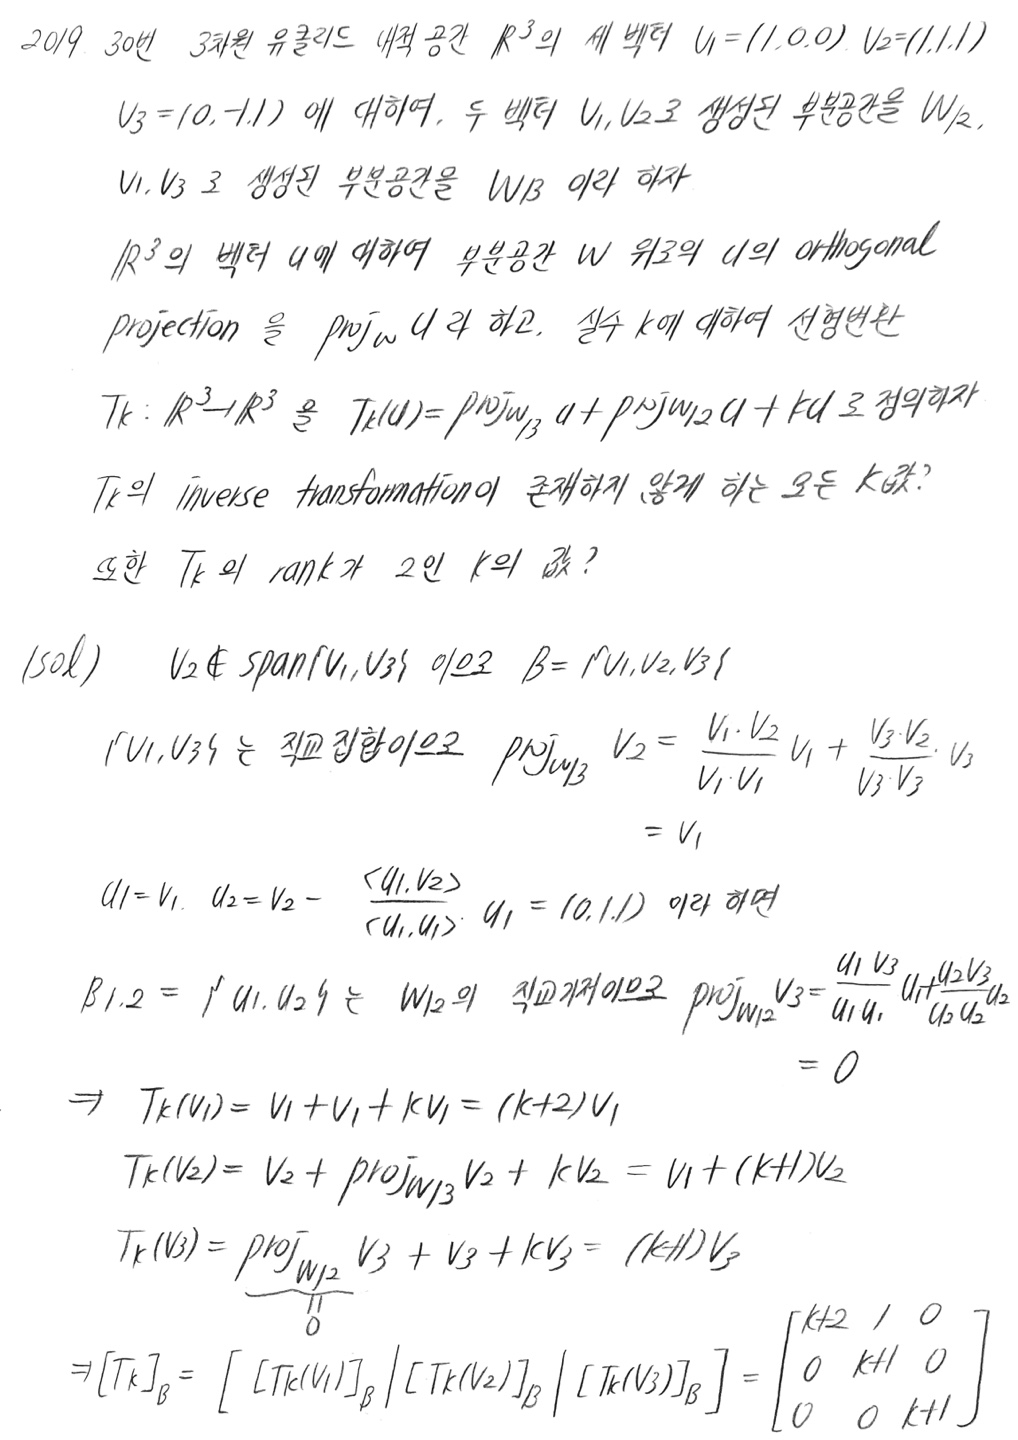 2019 30번 3차원 유클리드 내적 공간 ℝ³의 세 벡터 V₁=(1,0,0) V₂=(1,1,1)
V₃=(0,-1,1) 에 대하여, 두 벡터 V₁,V₂로 생성된 부분공간을 W₁₂,
V₁,V₃로 생성된 부분공간을 W₁₃ 이라 하자
ℝ³의 벡터 u에 대하여 부분공간 W 위로의 u의 orthogonal
projection 을 proj_W u 라 하고, 실수 k에 대하여 선형변환
Tk : ℝ³→ℝ³ 을 Tk(u)= proj_W₁₃ u + proj_W₁₂ u + ku 로 정의하자
Tk의 inverse transformation이 존재하지 않게 하는 모든 k값?
또한 Tk의 rank가 2인 k의 값?
(sol) V₂ ∉ span{V₁,V₃} 이므로 β= {V₁,V₂,V₃}
{V₁,V₃} 는 직교집합이므로 proj_W₁₃ V₂ = (V₁·V₂)/(V₁·V₁) V₁ + (V₃·V₂)/(V₃·V₃) · V₃
= V₁
u₁=V₁. u₂=V₂ - <u₁,V₂>/<u₁,u₁> · u₁ = (0,1,1) 이라 하면
β1.2 = {u₁.u₂} 는 W₁₂의 직교기저이므로 proj_W₁₂ V₃ = (u₁ V₃)/(u₁ u₁) u₁ + (u₂ V₃)/(u₂ u₂) u₂
= 0
⇒ Tk(V₁) = V₁ + V₁ + kV₁ = (k+2)V₁
Tk(V₂) = V₂ + proj_W₁₃ V₂ + kV₂ = V₁ + (k+1)V₂
Tk(V₃) = proj_W₁₂ V₃ + V₃ + kV₃ = (k+1)V₃
=
0
⇒ [Tk]β = [ [Tk(V₁)]β | [Tk(V₂)]β | [Tk(V₃)]β ] = [ k+2 1 0
0 k+1 0
0 0 k+1 ]